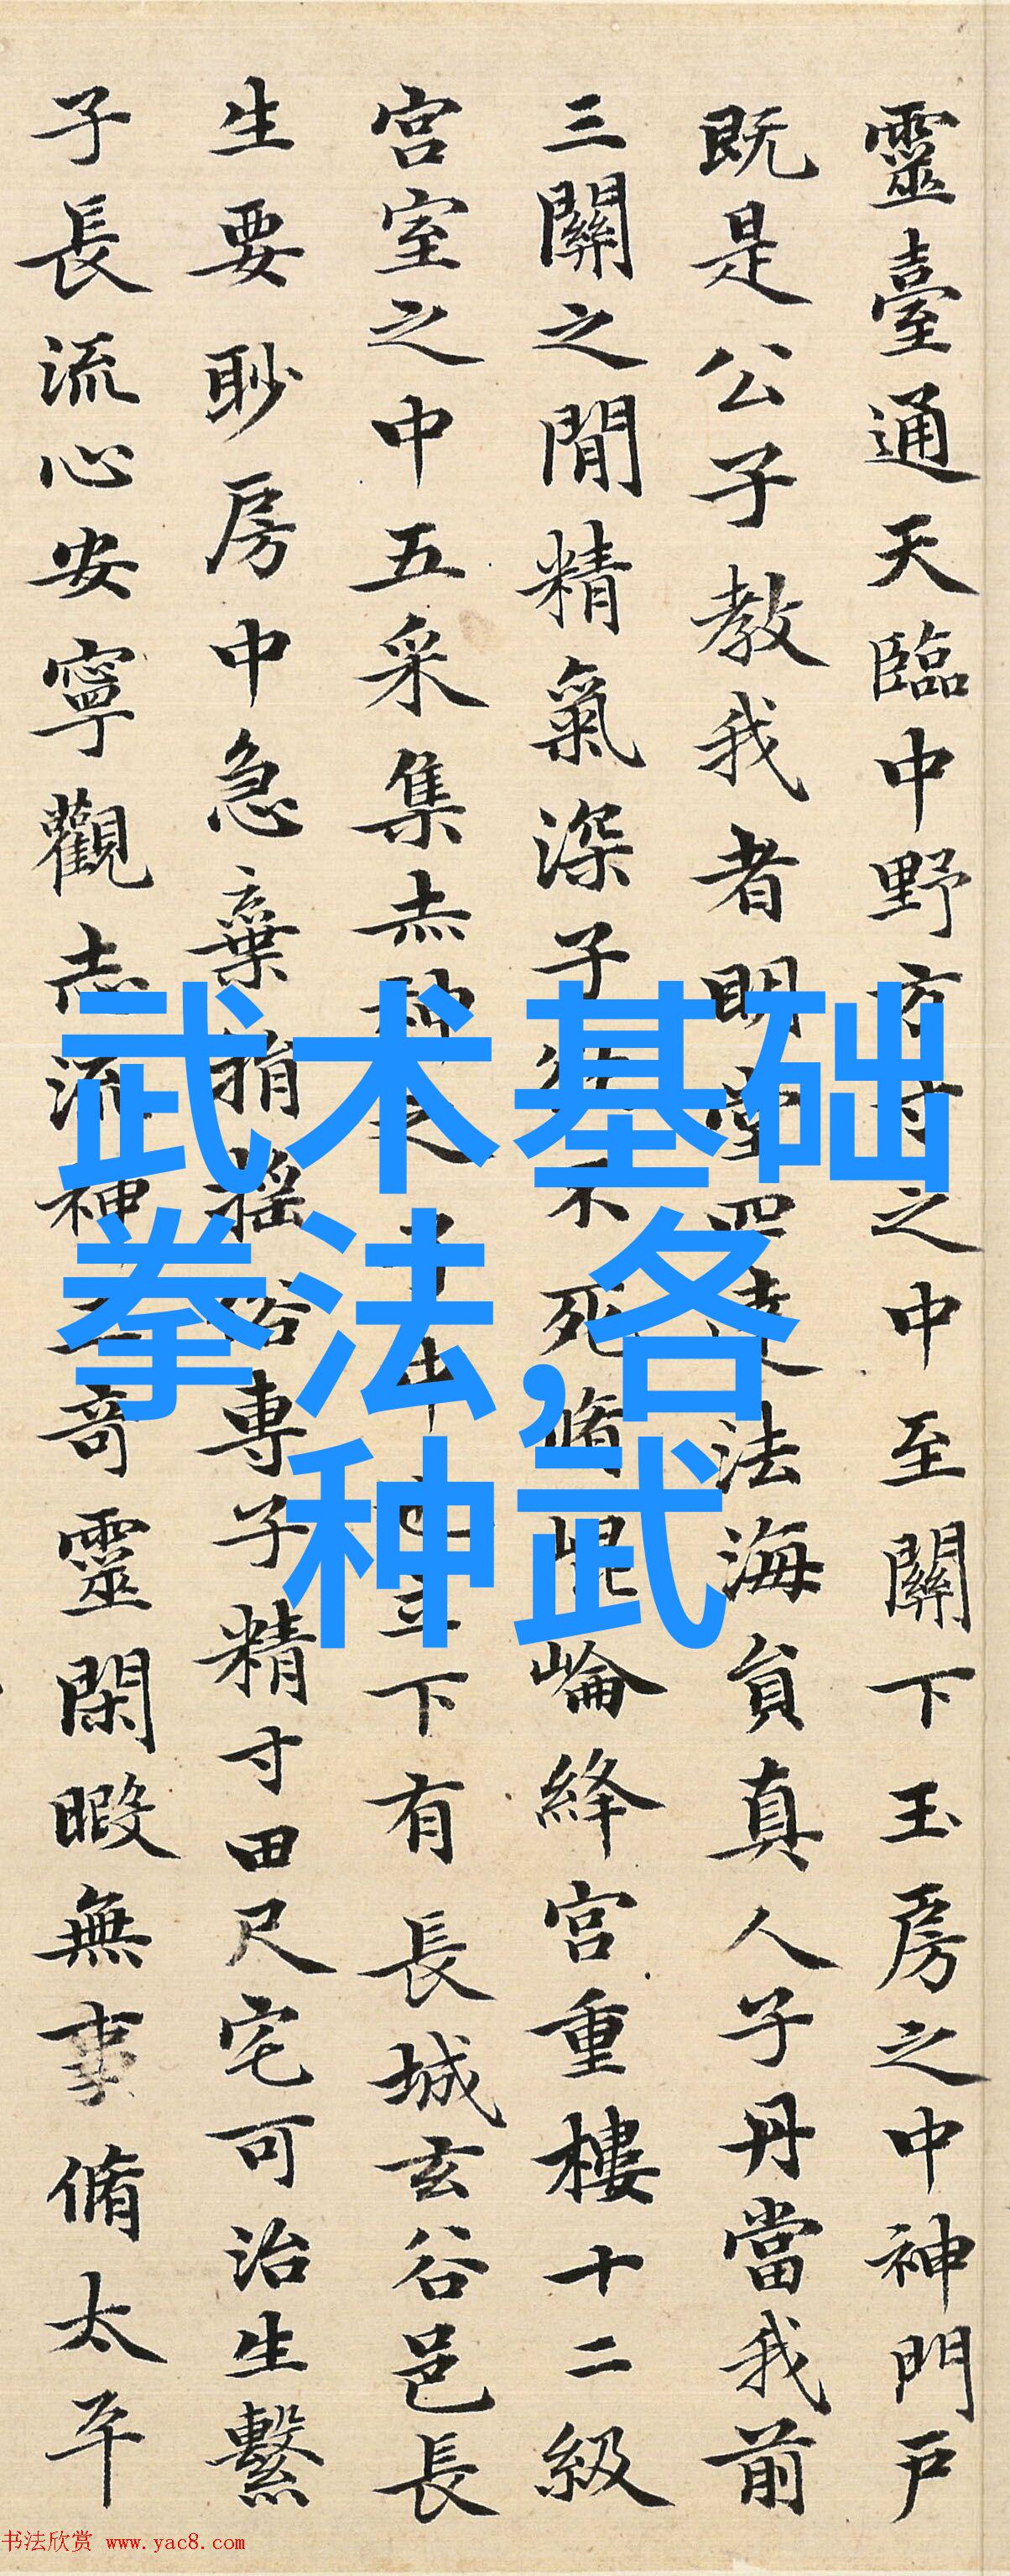 靈臺通天臨中野方寸之中至關下玉房之中神門戶
既是公子教我者明堂四達法海負真人子丹當我前
三關之閒精氣深子欲不死脩崐崘絳宮重樓十二級
宮室之中五采集赤神之子中池立下有長城玄谷邑長
生要眇房中急棄捐搖俗專子精寸田尺宅可治生繫
子長流心安寧觀志流神三奇靈閑暇無事脩太平
武术基础
拳法,各
种武
书法欣赏 www.yac8.com